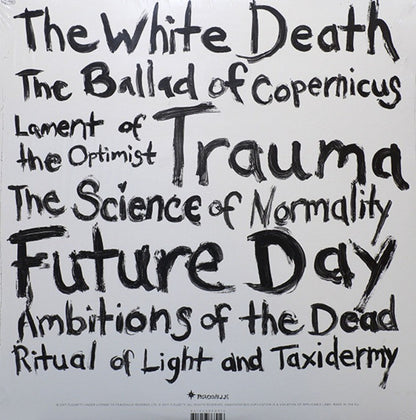 The White Death
The Ballad of Copernicus
Lament of
the Optimist
Trauma
The Science of Normality
Future Day
Ambitions of the Dead
Ritual of Light and Taxidermy
PEACEVILLE